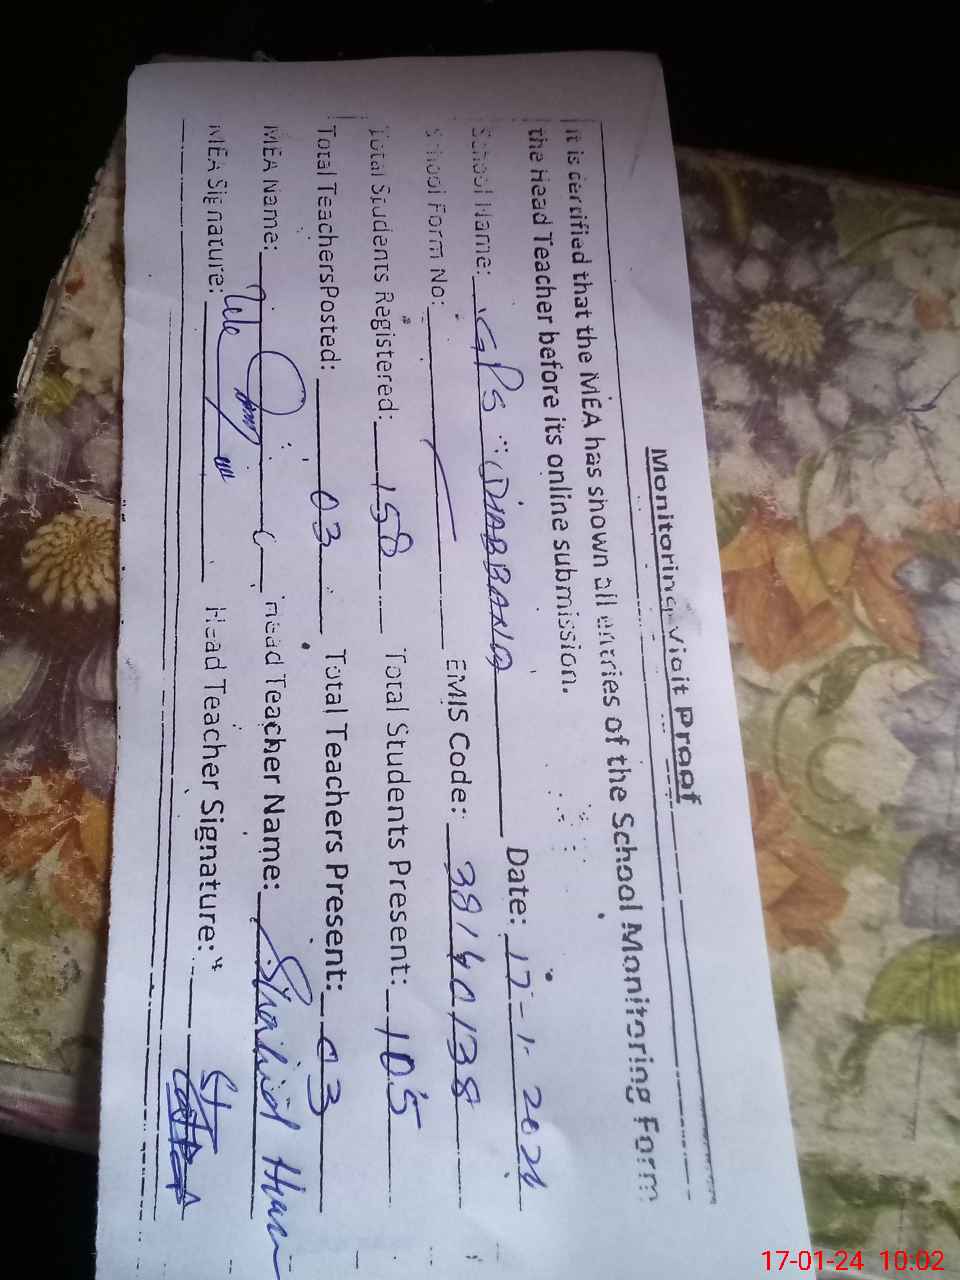 Monitoring Visit Proof
It is certified that the MEA has shown all entries of the School Monitoring Form
the Head Teacher before its online submission.
School Name: GPS DABBANA Date: 17-1-2024
School Form No: EMIS Code: 38140138
Total Students Registered: 158 Total Students Present: 105
Total Teachers Posted: 03 Total Teachers Present: 03
MEA Name: Head Teacher Name: Shahid
MEA Signature: Head Teacher Signature:
17-01-24 10:02